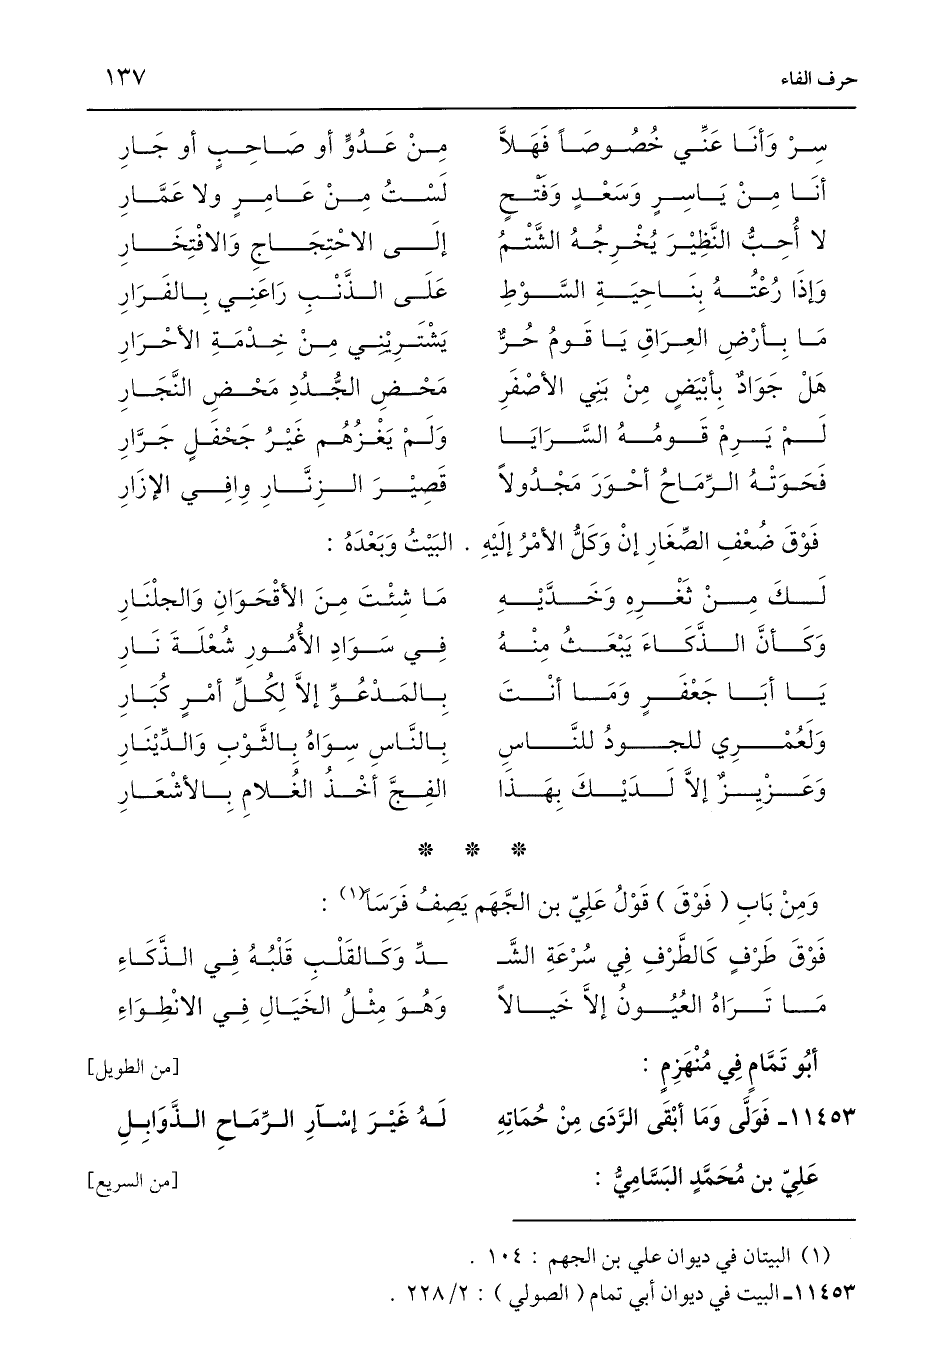 حرف الفاء ١٣٧
سِرْ وَأنَا عَنِّي خُصُوصَاً فَهَلاَّ مِنْ عَدُوٍّ أو صَاحِبٍ أو جَارِ
أنَا مِنْ يَاسِرٍ وَسَعْدٍ وَفَتْحٍ لَسْتُ مِنْ عَامِرٍ ولا عَمَّارِ
لا أُحِبُّ النَّظِيْرَ يُخْرِجُهُ الشَّتْمُ إلَى الاحْتِجَاجِ وَالافْتِخَارِ
وَإذَا رُعْتُهُ بِنَاحِيَةِ السَّوْطِ عَلَى الذَّنْبِ رَاعَنِي بِالفَرَارِ
مَا بِأرْضِ العِرَاقِ يَا قَومُ حُرٌّ يَشْتَرِيْنِي مِنْ خِدْمَةِ الأحْرَارِ
هَلْ جَوَادٌ بِأبْيَضٍ مِنْ بَنِي الأصْفَرِ مَحْضِ الجُّدُدِ مَحْضِ النَّجَارِ
لَمْ يَرِمْ قَومُهُ السَّرَايَا وَلَمْ يَغْزُهُم غَيْرُ جَحْفَلٍ جَرَّارِ
فَحَوَتْهُ الرِّمَاحُ أحْوَرَ مَجْدُولاً قَصِيْرَ الزِنَّارِ وافِي الإزَارِ
فَوْقَ ضُعْفِ الصِّغَارِ إنْ وَكَلُّ الأمْرُ إلَيْهِ . البَيْتُ وَبَعْدَهُ :
لَكَ مِنْ ثَغْرِهِ وَخَدَّيْهِ مَا شِئْتَ مِنَ الأقْحَوَانِ وَالجلْنَارِ
وَكَأنَّ الذَّكَاءَ يَبْعَثُ مِنْهُ فِي سَوَادِ الأُمُورِ شُعْلَةَ نَارِ
يَا أبَا جَعْفَرٍ وَمَا أنْتَ بِالمَدْعُوِّ إلاَّ لِكُلِّ أمْرٍ كُبَارِ
وَلَعَمْرِي للجودُ للنَّاسِ بِالنَّاسِ سِوَاهُ بِالثَّوْبِ وَالدِّيْنَارِ
وَعَزِيْزٌ إلاَّ لَدَيْكَ بِهَذَا الفِجَّ أخْذُ الغُلامِ بِالأشْعَارِ
* * *
وَمِنْ بَابِ ( فَوْقَ ) قَوْلُ عَلِيّ بن الجَّهَمِ يَصِفُ فَرَسَاً(١) :
فَوْقَ طَرْفٍ كَالطَّرْفِ فِي سُرْعَةِ الشَّـ ـدِّ وَكَالقَلْبِ قَلْبُهُ فِي الذَّكَاءِ
مَا تَرَاهُ العُيُونُ إلاَّ خَيَالاً وَهُوَ مِثْلُ الخَيَالِ فِي الانْطِوَاءِ
أبُو تَمَّامٍ فِي مُنْهَزِمٍ : [من الطويل]
١١٤٥٣ـ فَوَلَّى وَمَا أبْقَى الرَّدَى مِنْ حُمَاتِهِ لَهُ غَيْرَ إسْآرِ الرِّمَاحِ الذَّوَابِلِ
عَلِيّ بن مُحَمَّدٍ البَسَّامِيُّ : [من السريع]
(١) البيتان في ديوان علي بن الجهم : ١٠٤ .
١١٤٥٣ـ البيت في ديوان أبي تمام ( الصولي ) : ٢٢٨/٢ .